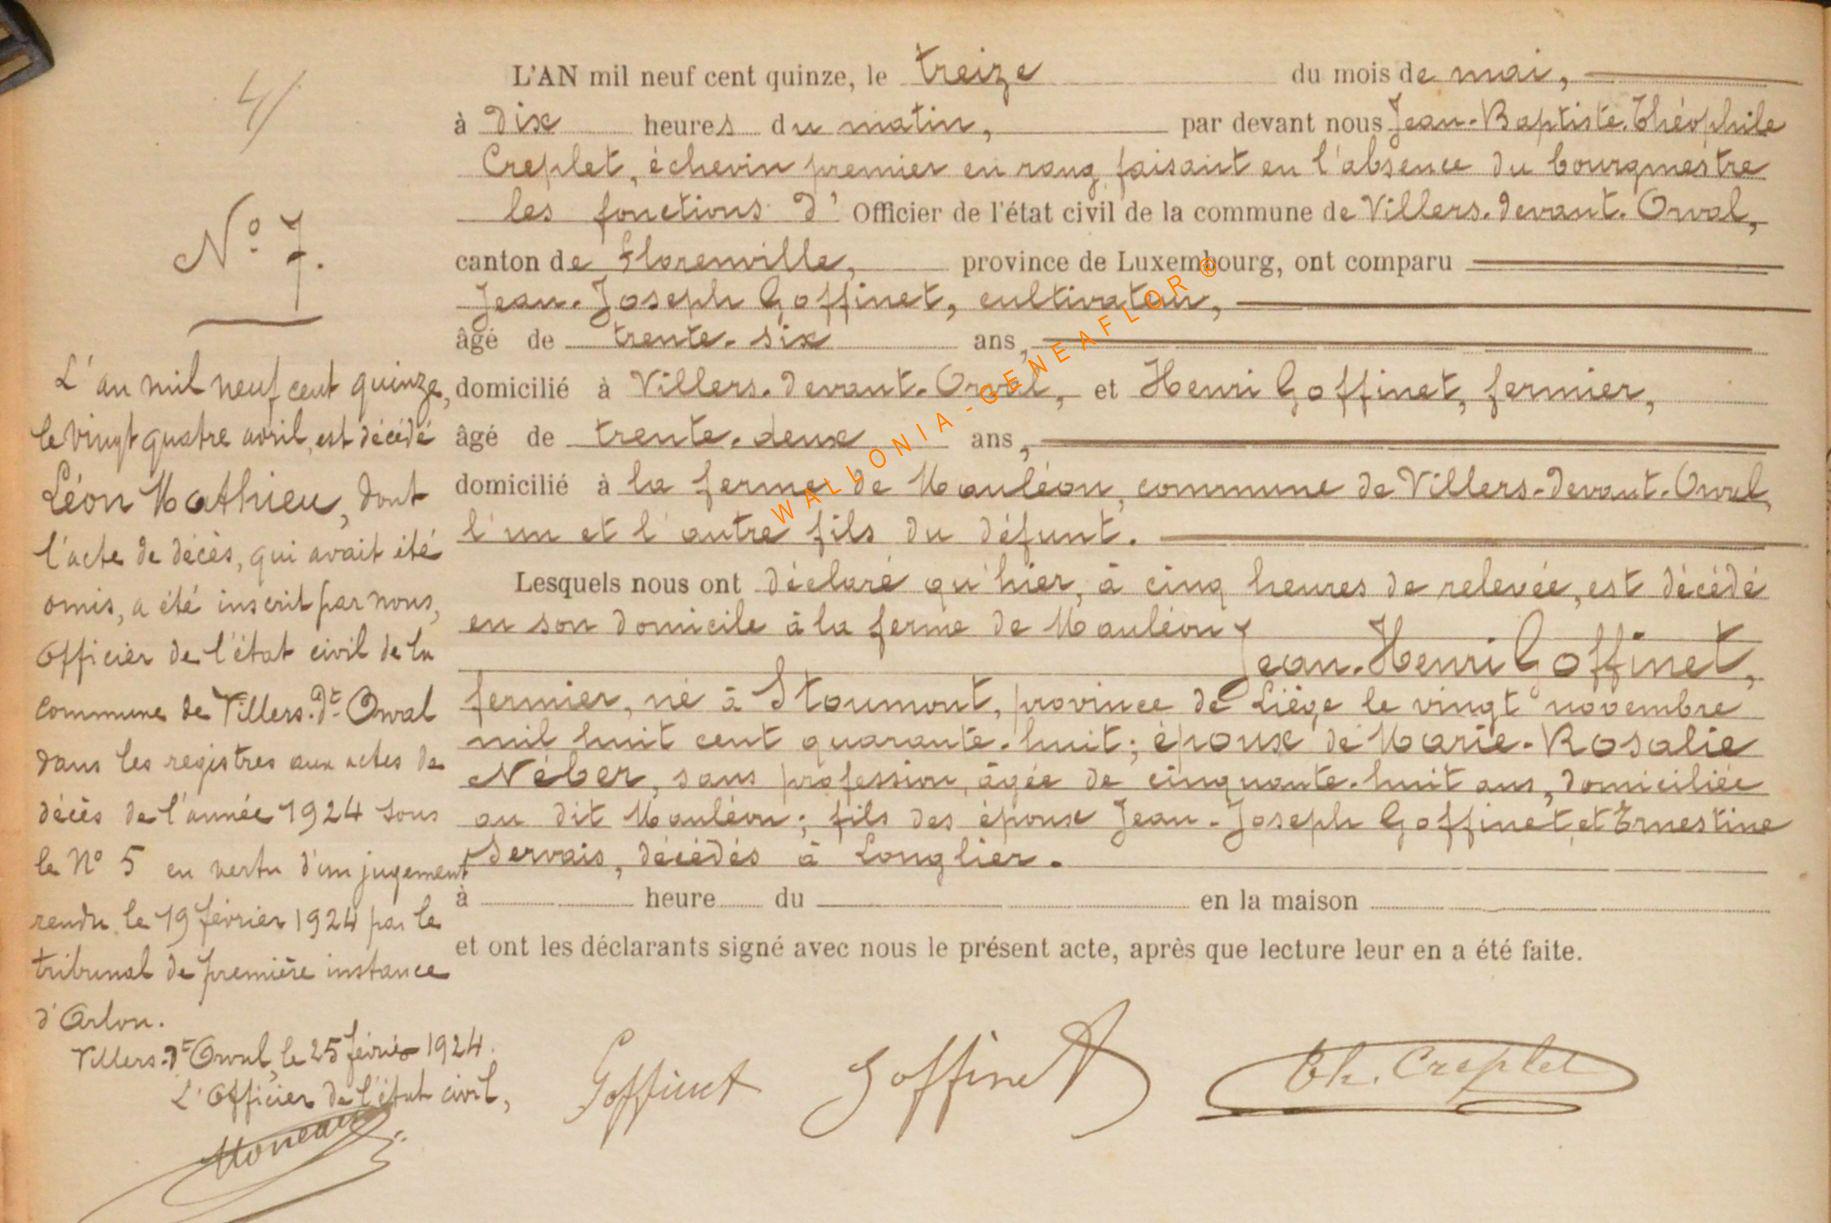 4/
N° 7.
L'an mil neuf cent quinze,
le vingt quatre avril, est décédé
Léon Mathieu, dont
l'acte de décès, qui avait été
omis, a été inscrit par nous,
Officier de l'état civil de la
commune de Villers-dt-Orval
dans les registres aux actes de
décès de l'année 1924 sous
le N° 5 en vertu d'un jugement
rendu le 19 février 1924 par le
tribunal de première instance
d'Arlon.
Villers-dt-Orval, le 25 février 1924.
L'Officier de l'état civil,
L'AN mil neuf cent quinze, le treize du mois de mai,
à dix heures du matin, par devant nous Jean-Baptiste-Théophile
Creplet, échevin premier en rang faisant en l'absence du bourgmestre
les fonctions d' Officier de l'état civil de la commune de Villers-devant-Orval,
canton de Florenville, province de Luxembourg, ont comparu
Jean-Joseph Goffinet, cultivateur,
âgé de trente-six ans,
domicilié à Villers-devant-Orval, et Henri Goffinet, fermier,
âgé de trente-deux ans,
domicilié à la ferme de Mauléon, commune de Villers-devant-Orval,
l'un et l'autre fils du défunt.
Lesquels nous ont déclaré qu'hier, à cinq heures de relevée, est décédé
en son domicile à la ferme de Mauléon
Jean-Henri Goffinet,
fermier, né à Stoumont, province de Liège le vingt novembre
mil huit cent quarante-huit; époux de Marie-Rosalie
Néber, sans profession, âgée de cinquante-huit ans, domiciliée
au dit Mauléon; fils des époux Jean-Joseph Goffinet et Ernestine
Servais, décédés à Longlier.
à heure du en la maison
et ont les déclarants signé avec nous le présent acte, après que lecture leur en a été faite.
Goffinet Goffinet Th. Creplet
WALLONIA-GENEAFLOR ®